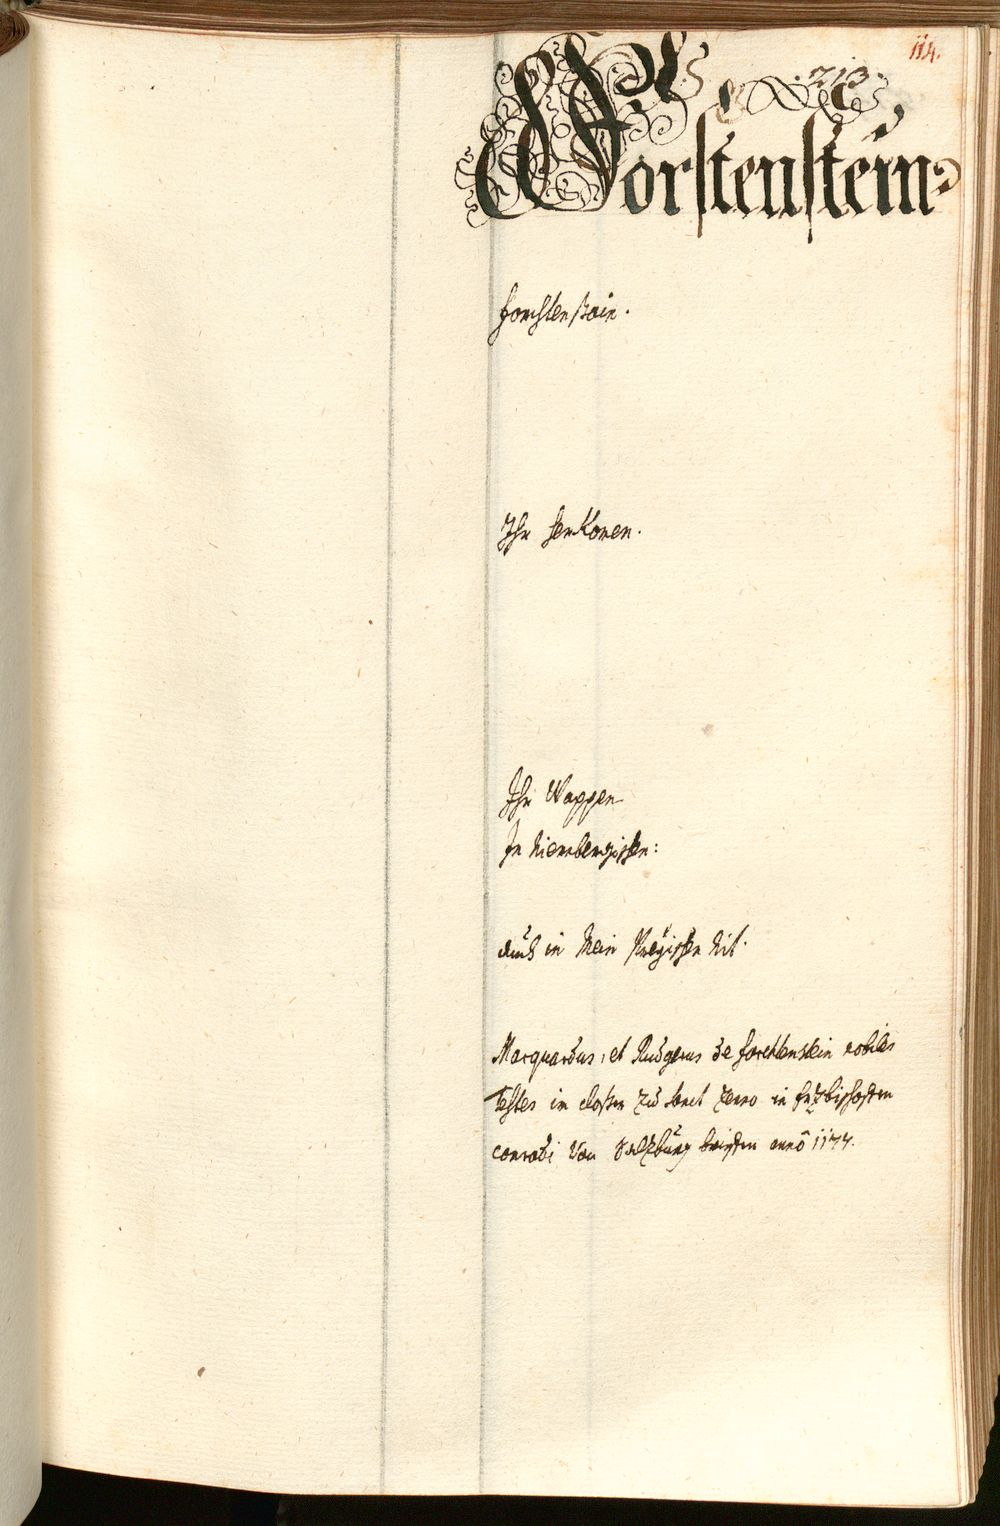 114.
213.
Vorstenstein
Forchtenstain.
Ihr herkomen.
Ihr Wappen
In Niernbergischen:
auch in Mein Preysischen nit.
Marquardus, et Rudgerus de forchtenstein nobiles
testes in closter zu sanct Zeno in Erzbischoffen
conradi von Salzburg brieffen anno 1177.